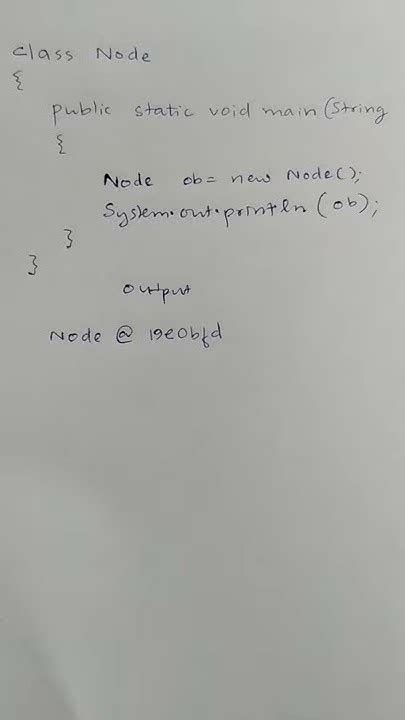 class Node
{
public static void main(String
{
Node ob= new Node();
System.out.println(ob);
}
}
output
Node @ 19e0bfd